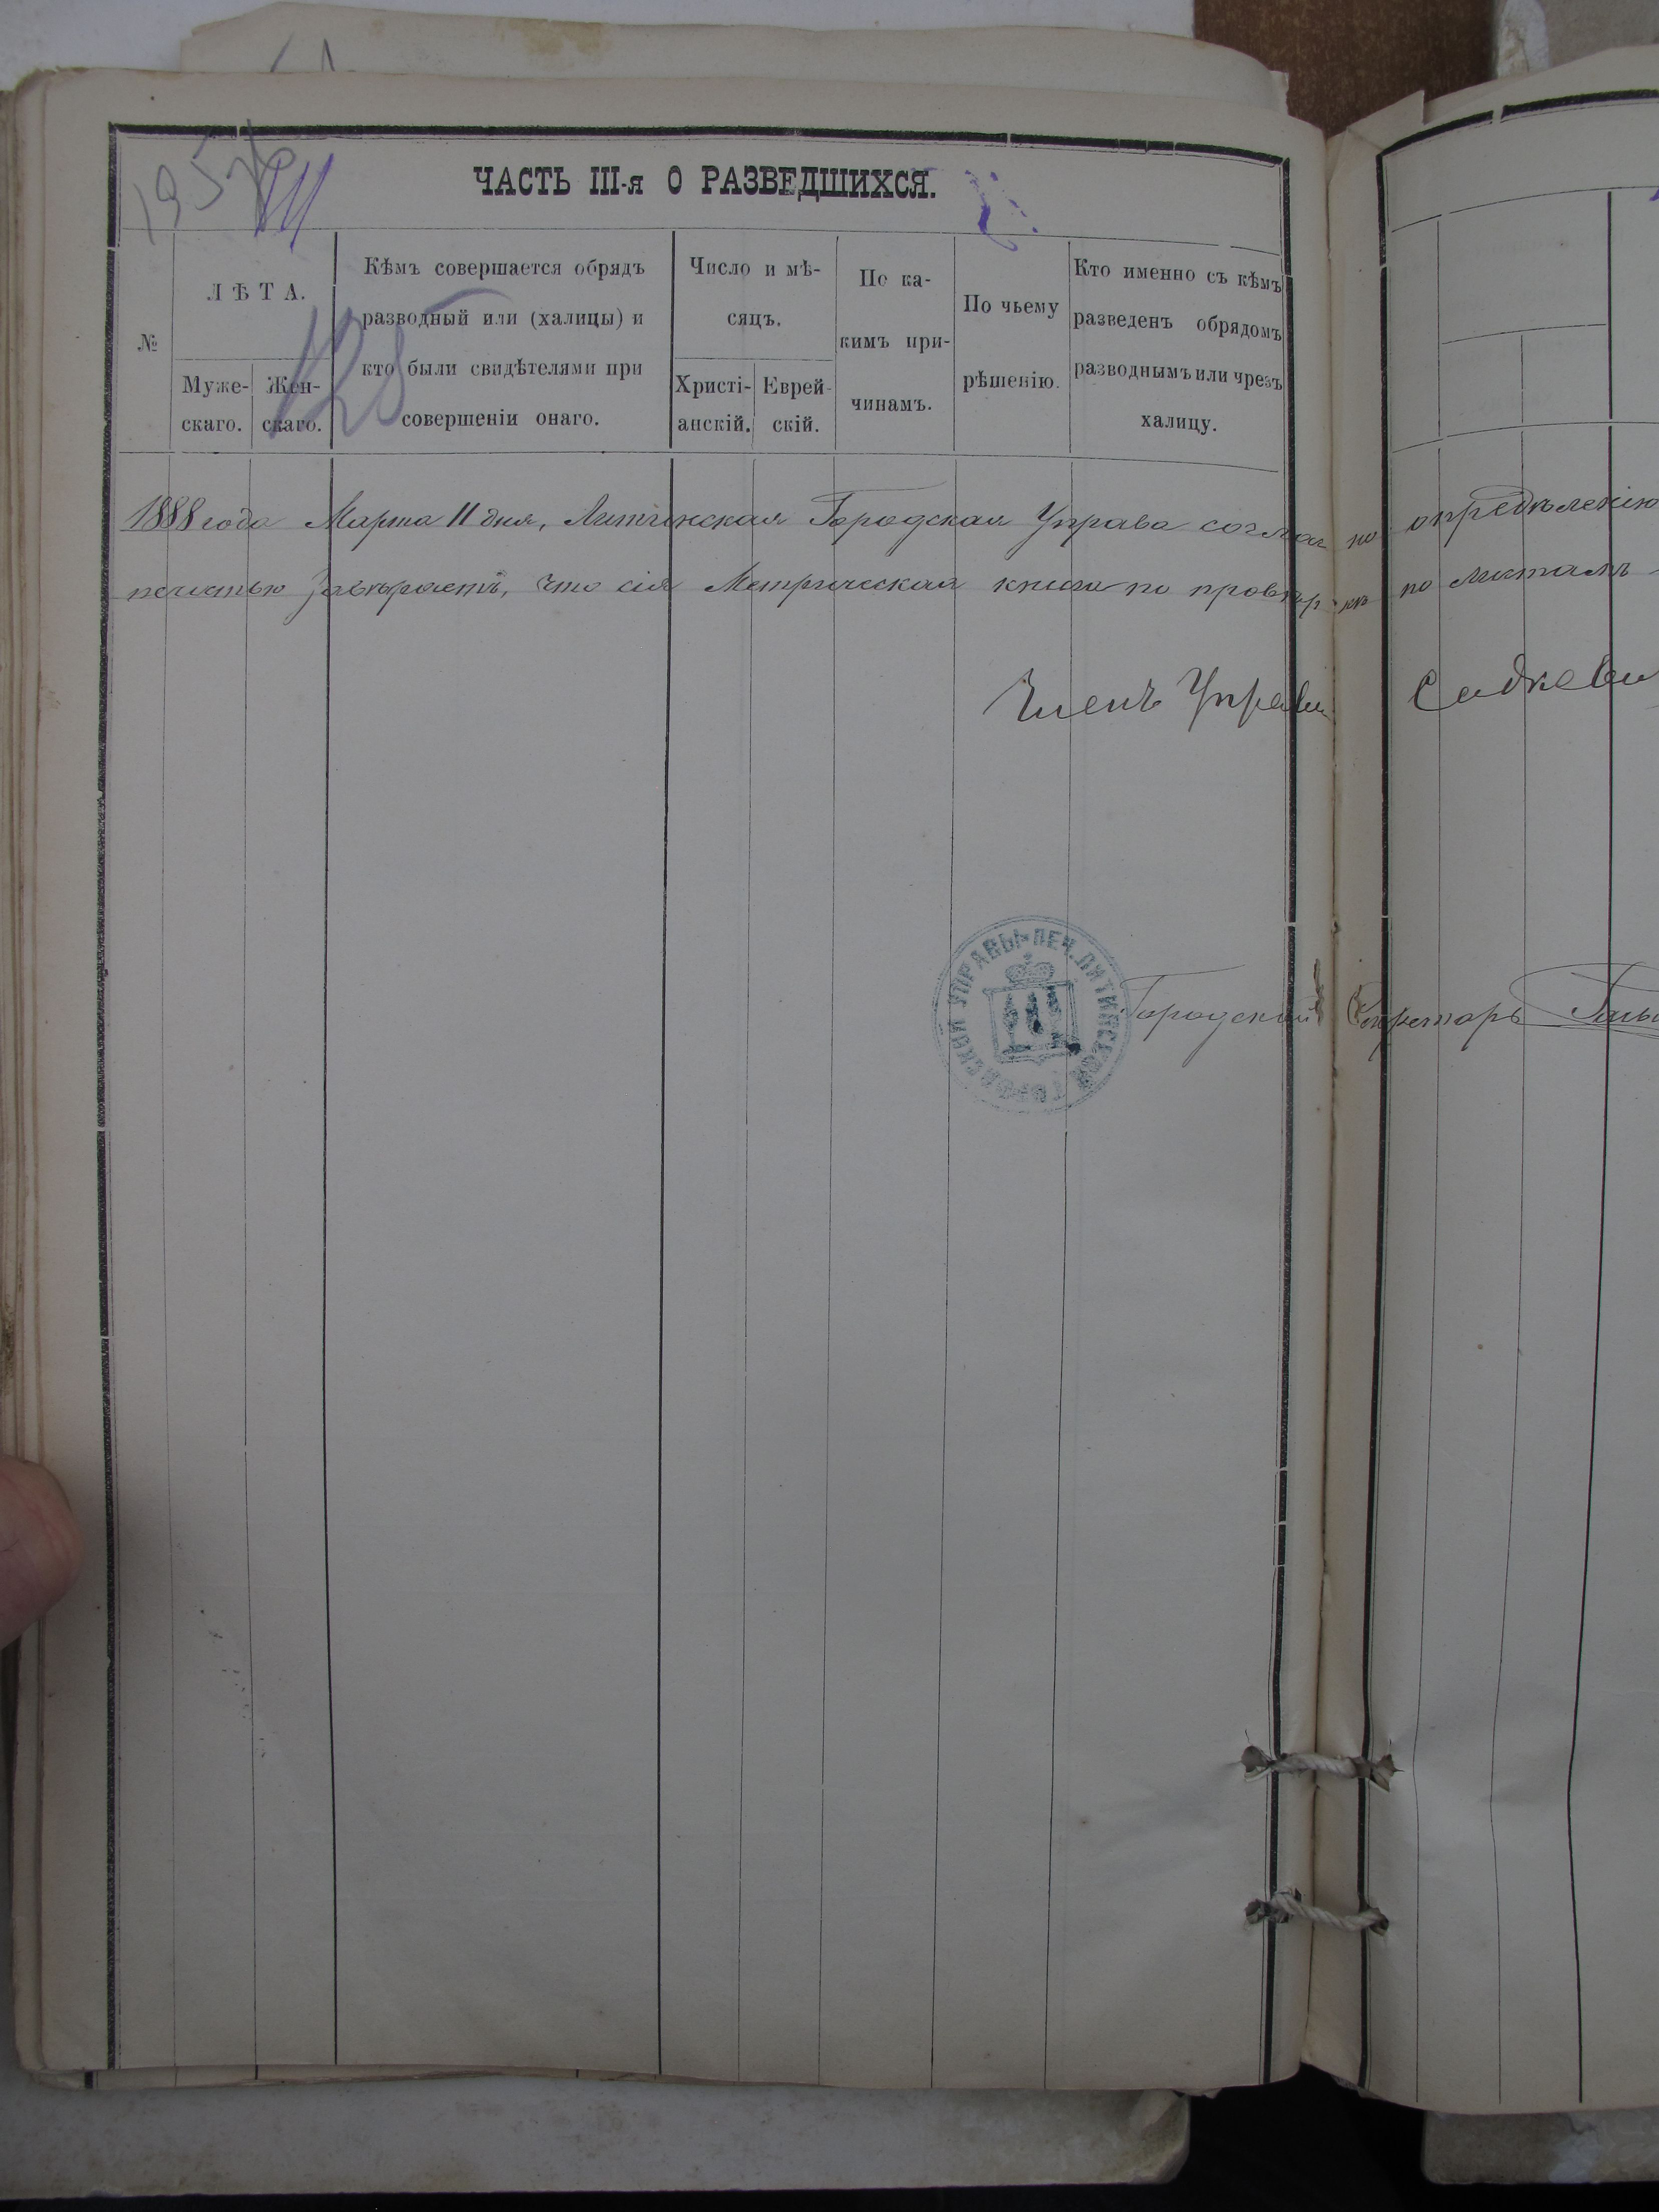 ЧАСТЬ III-я О РАЗВЕДШИХСЯ.
№
ЛѢТА.
Муже-
скаго.
Жен-
скаго.
Кѣмъ совершается обрядъ
разводный или (халицы) и
кто были свидѣтелями при
совершеніи онаго.
Число и мѣ-
сяцъ.
Христі-
анскій.
Еврей-
скій.
По ка-
кимъ при-
чинамъ.
По чьему
рѣшенію.
Кто именно съ кѣмъ
разведенъ обрядомъ
разводнымъ или чрезъ
халицу.
1888 года Марта 11 дня, Литинская Городская Управа соглас но опредѣленію
печатью завѣряетъ, что сія Метрическая книга по провѣр кѣ по листамъ
Членъ Управы Садкеви
ПЕЧ. ЛИТИНСКОЙ ГОРОДСКОЙ УПРАВЫ
Городской Секретарь